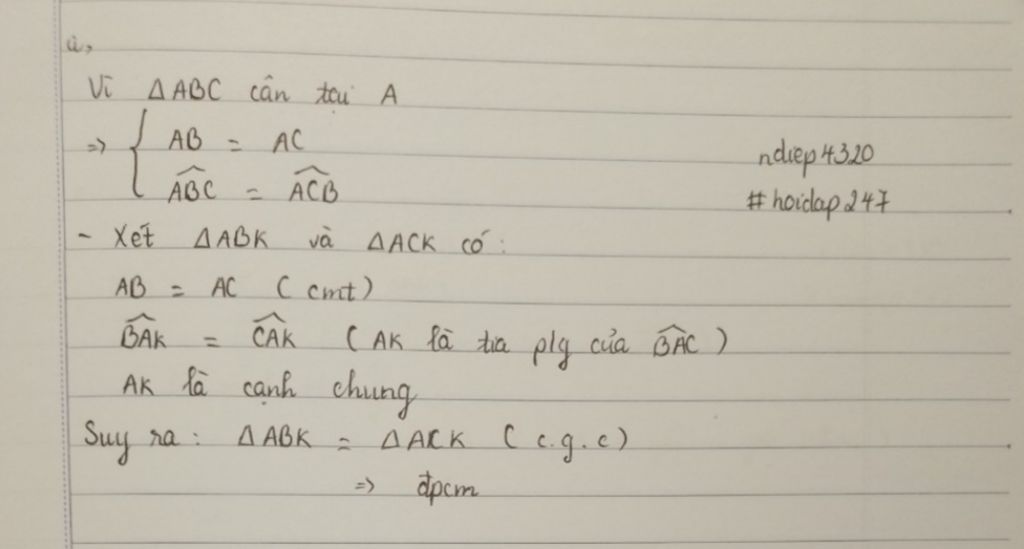 a,
Vì ΔABC cân tại A
=> { AB = AC
\widehat{ABC} = \widehat{ACB}
ndiep4320
#hoidap247
- Xét ΔABK và ΔACK có:
AB = AC (cmt)
\widehat{BAK} = \widehat{CAK} (AK là tia p/g của \widehat{BAC})
AK là cạnh chung
Suy ra: ΔABK = ΔACK (c.g.c)
=> đpcm